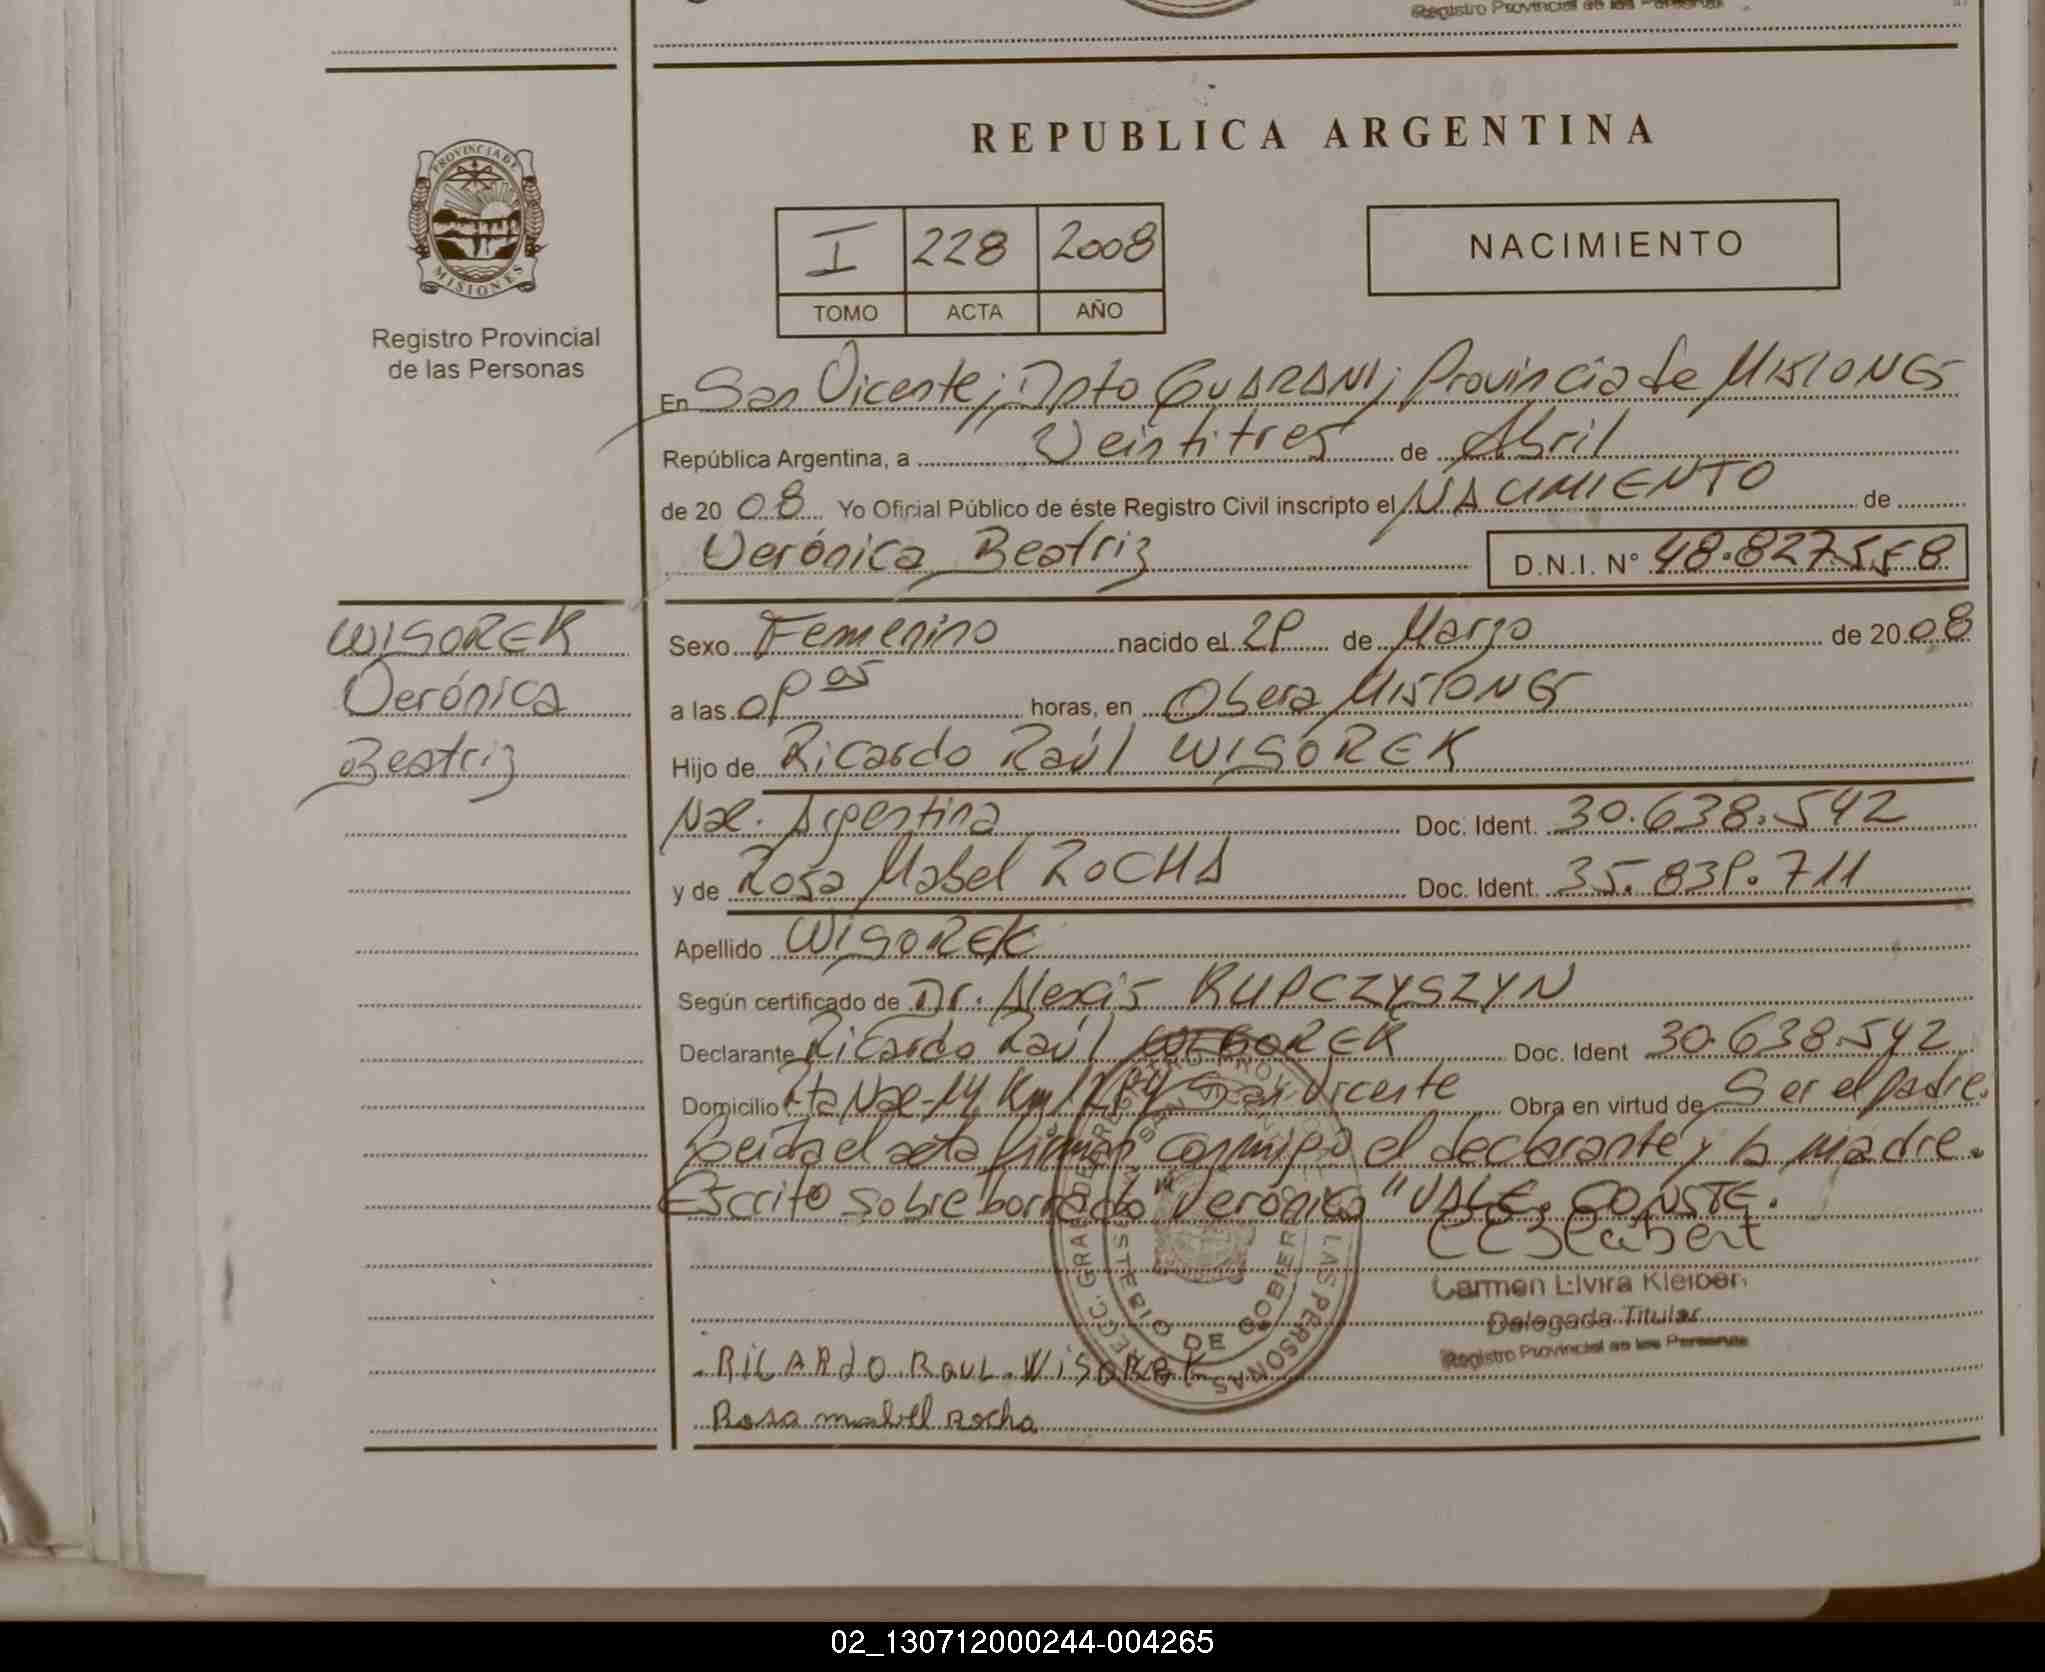 Registro Provincial de las Personas
REPUBLICA ARGENTINA
PROVINCIA DE
MISIONES
Registro Provincial
de las Personas
I 228 2008
TOMO ACTA AÑO
NACIMIENTO
En San Vicente, Dpto GUARANI, Provincia de MISIONES
República Argentina, a Veintitres de Abril
de 2008 Yo Oficial Público de éste Registro Civil inscripto el NACIMIENTO de
Verónica Beatriz D.N.I. N° 48.827.558
WISOREK
Verónica
Beatriz
Sexo Femenino nacido el 29 de Marzo de 2008
a las 09 05 horas, en Obera MISIONES
Hijo de Ricardo Raúl WISOREK
Nac. Argentina Doc. Ident. 30.638.542
y de Rosa Mabel ROCHA Doc. Ident. 35.839.711
Apellido WISOREK
Según certificado de Dr. Alexis KUPCZYSZYN
Declarante Ricardo Raúl WISOREK Doc. Ident 30.638.542
Domicilio Rta Nac-14 Km San Vicente Obra en virtud de Ser el padre.
Leida el acta firman conmigo el declarante y la madre.
Escrito sobre borrado "Verónica" VALE. CONSTE.
Carmen Elvira Kleiber
Delegada Titular
Registro Provincial de las Personas
RICARDO RAUL WISOREK
Rosa mabel Rocha
MINISTERIO DE GOBIERNO
LAS PERSONAS
02_130712000244-004265